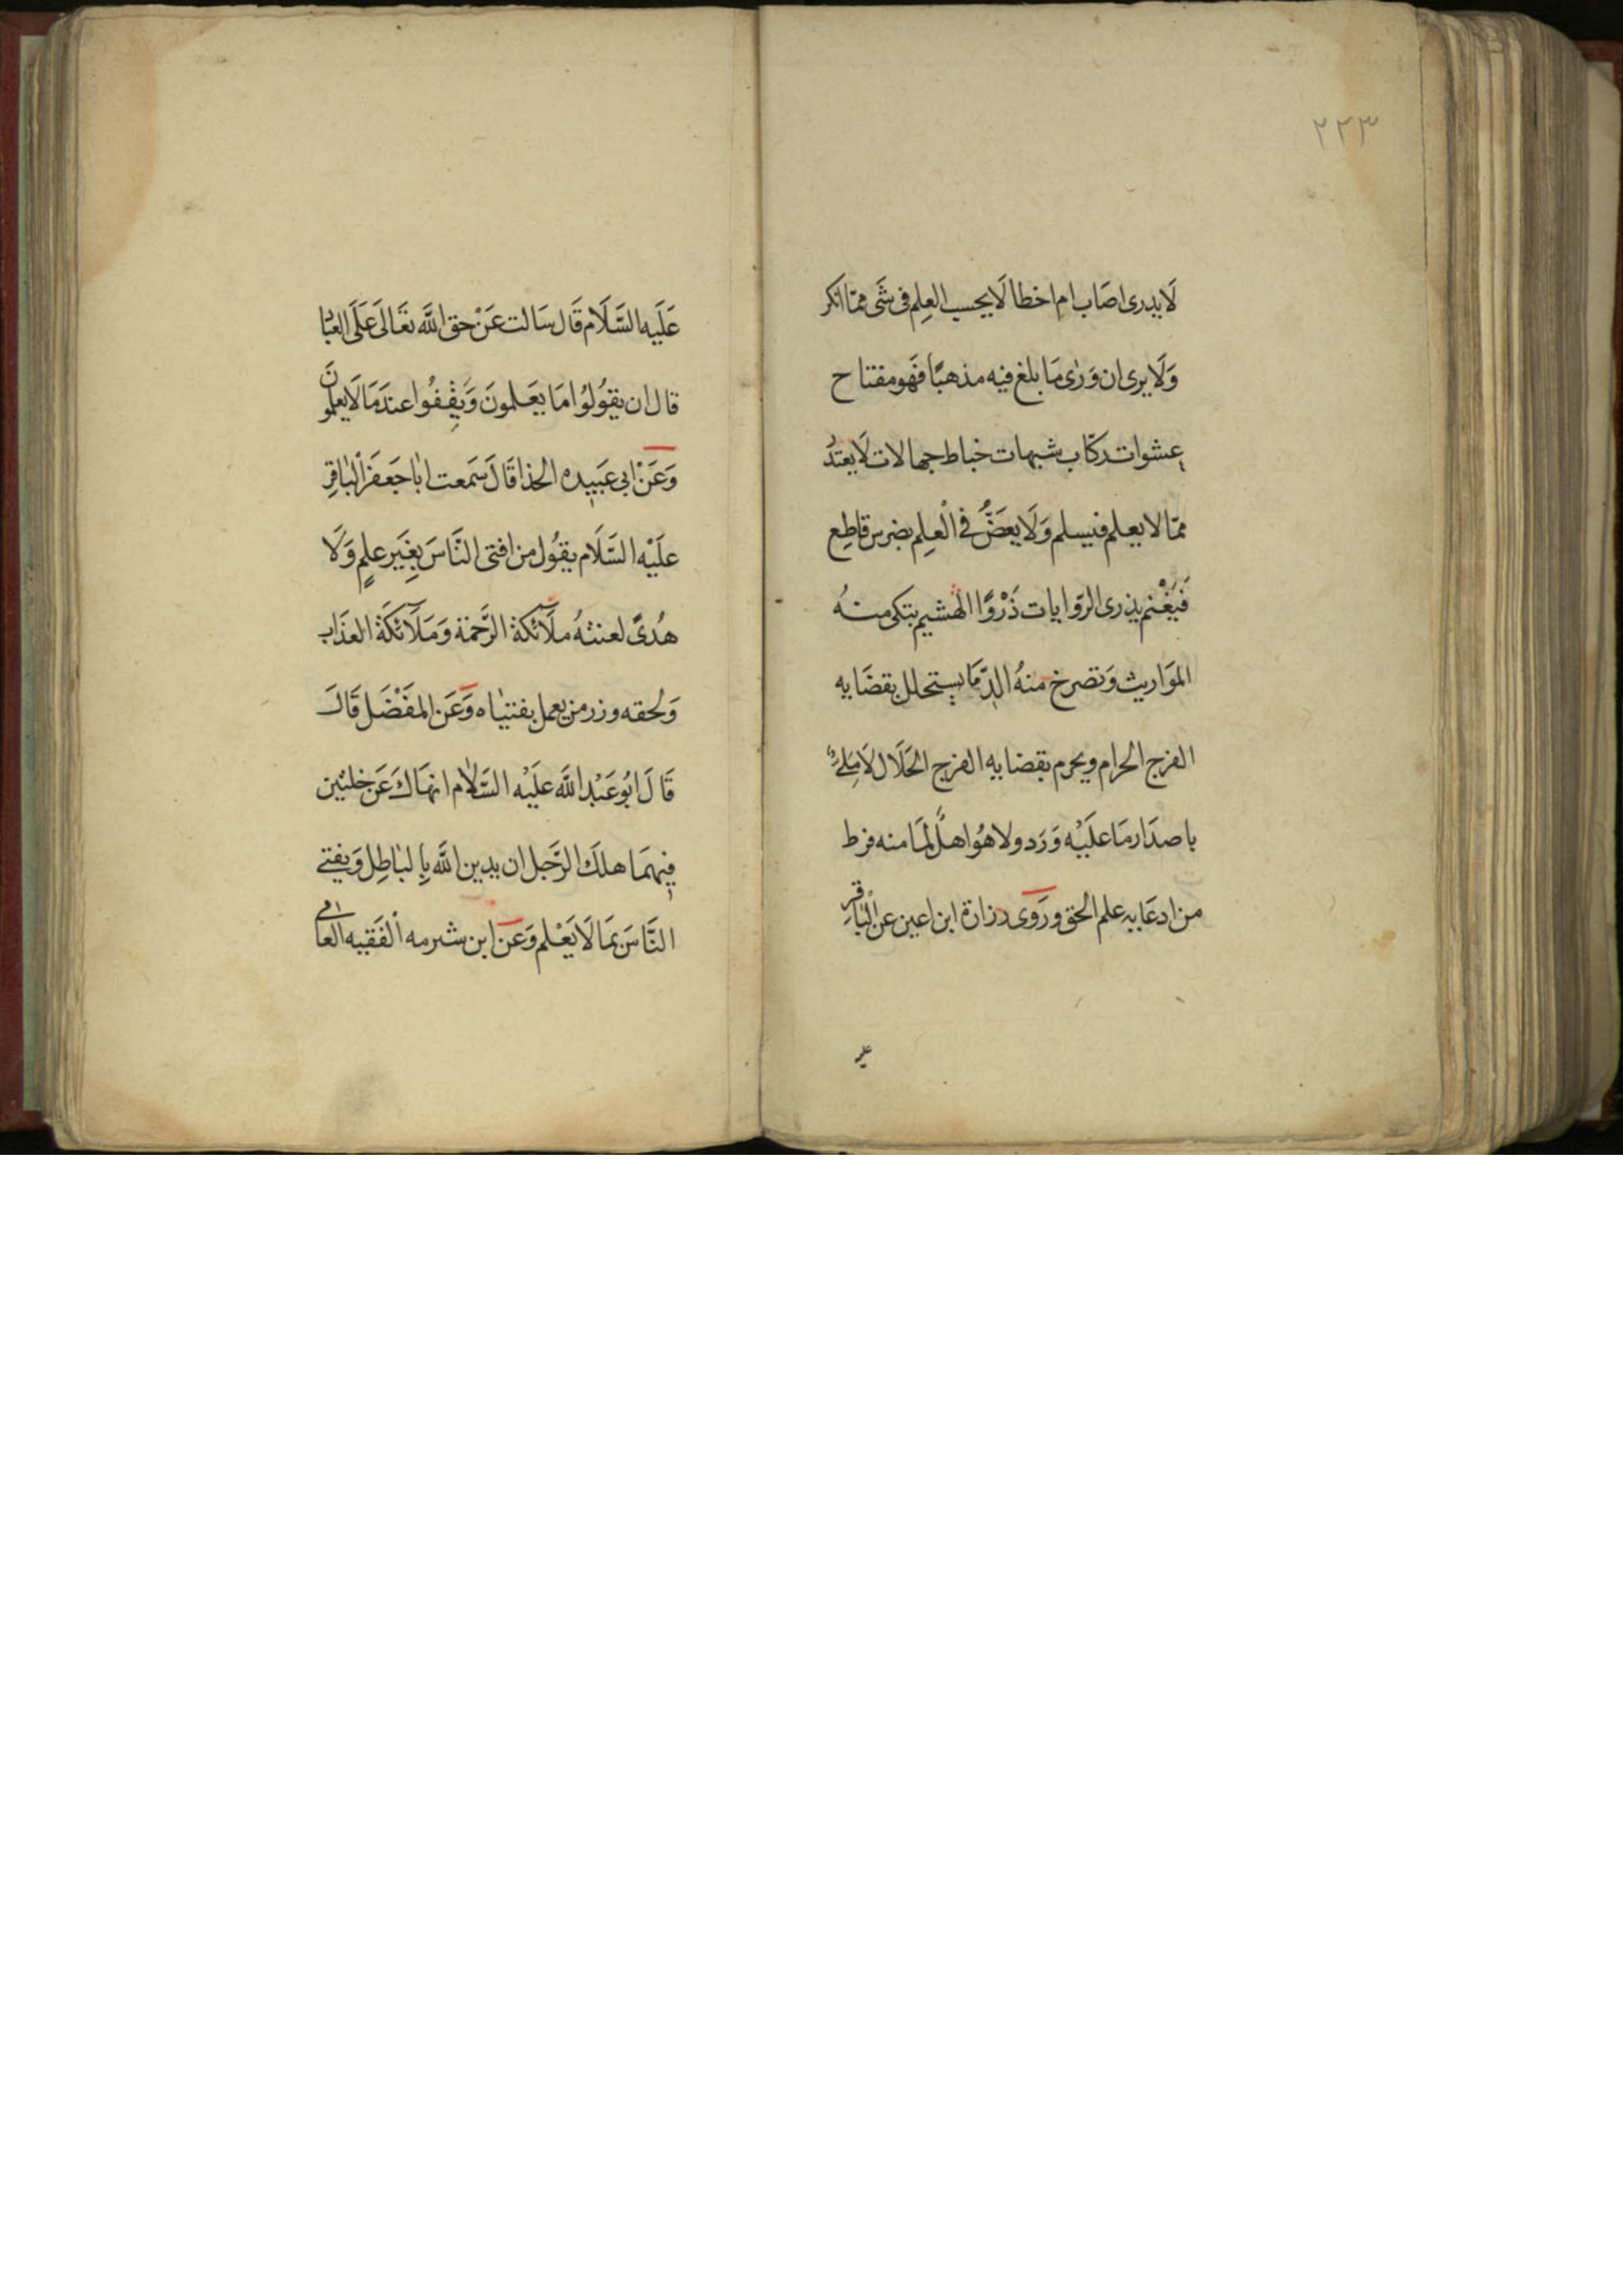 ٢٢٣
لَا يدرى اصَاب ام اخطا لَا يحسب العِلم فى شَى ممّا انكر
وَلَا يرى ان وَرٰى مَا بلغ فيه مذهبًا فَهو مفتاح
عشوات ركّاب شبهات خباط جهالات لَا يعتذُ
ممّا لا يعلم فيسلم وَلَا يعَضُّ فى الْعِلم بضرس قاطِع
فَيَغْنم يذرى الرّوايات ذَرْوًا الهشيم تبكى منهُ
الموَاريث وَتصرخ منهُ الدّمَا يستحلل بقضَايه
الفرج الحرام ويحرم بقضايه الفرج الحَلَال لَا مَلِئٌ
باصدَار مَا عليْه وَرَد ولا هُو اهلٌ لمَا منه فرط
من ادعَايه علم الحق ورَوَى زرارة ابن اعين عن الْبَاقِرِ
عليه
عَلَيه السَّلَام قَال سَالت عَنْ حق اللَّه تعَالىَ عَلَى العبَا
قال ان يقوُلوُا مَا يعَلمونَ وَيقِفُوا عندَ مَا لَا يعلمونَ
وَعَنْ ابى عَبيده الحذا قَالَ سَمعت ابٰا جَعفَر الْبٰاقِرِ
عليْه السَّلَام يقوُل من افتى النَّاسَ بِغَير علمٍ وَلَا
هُدىً لعنتهُ ملَآئكة الرَّحمَة وَمَلَآئكَة العذَاب
وَلحقه وزر من يعمل بفتيٰاه وَعَن المفَضَل قَالَ
قَالَ ابوُ عَبْد اللَّه عليْه السَّلاٰم انهَاكَ عَن خلتين
فيهمَا هلكَ الرَّجل ان يدين اللَّه بِالبٰاطِل وَيفتى
النَّاسَ بمَا لَا يَعْلم وَعَن ابن شبرمه الْفَقيه العٰامى